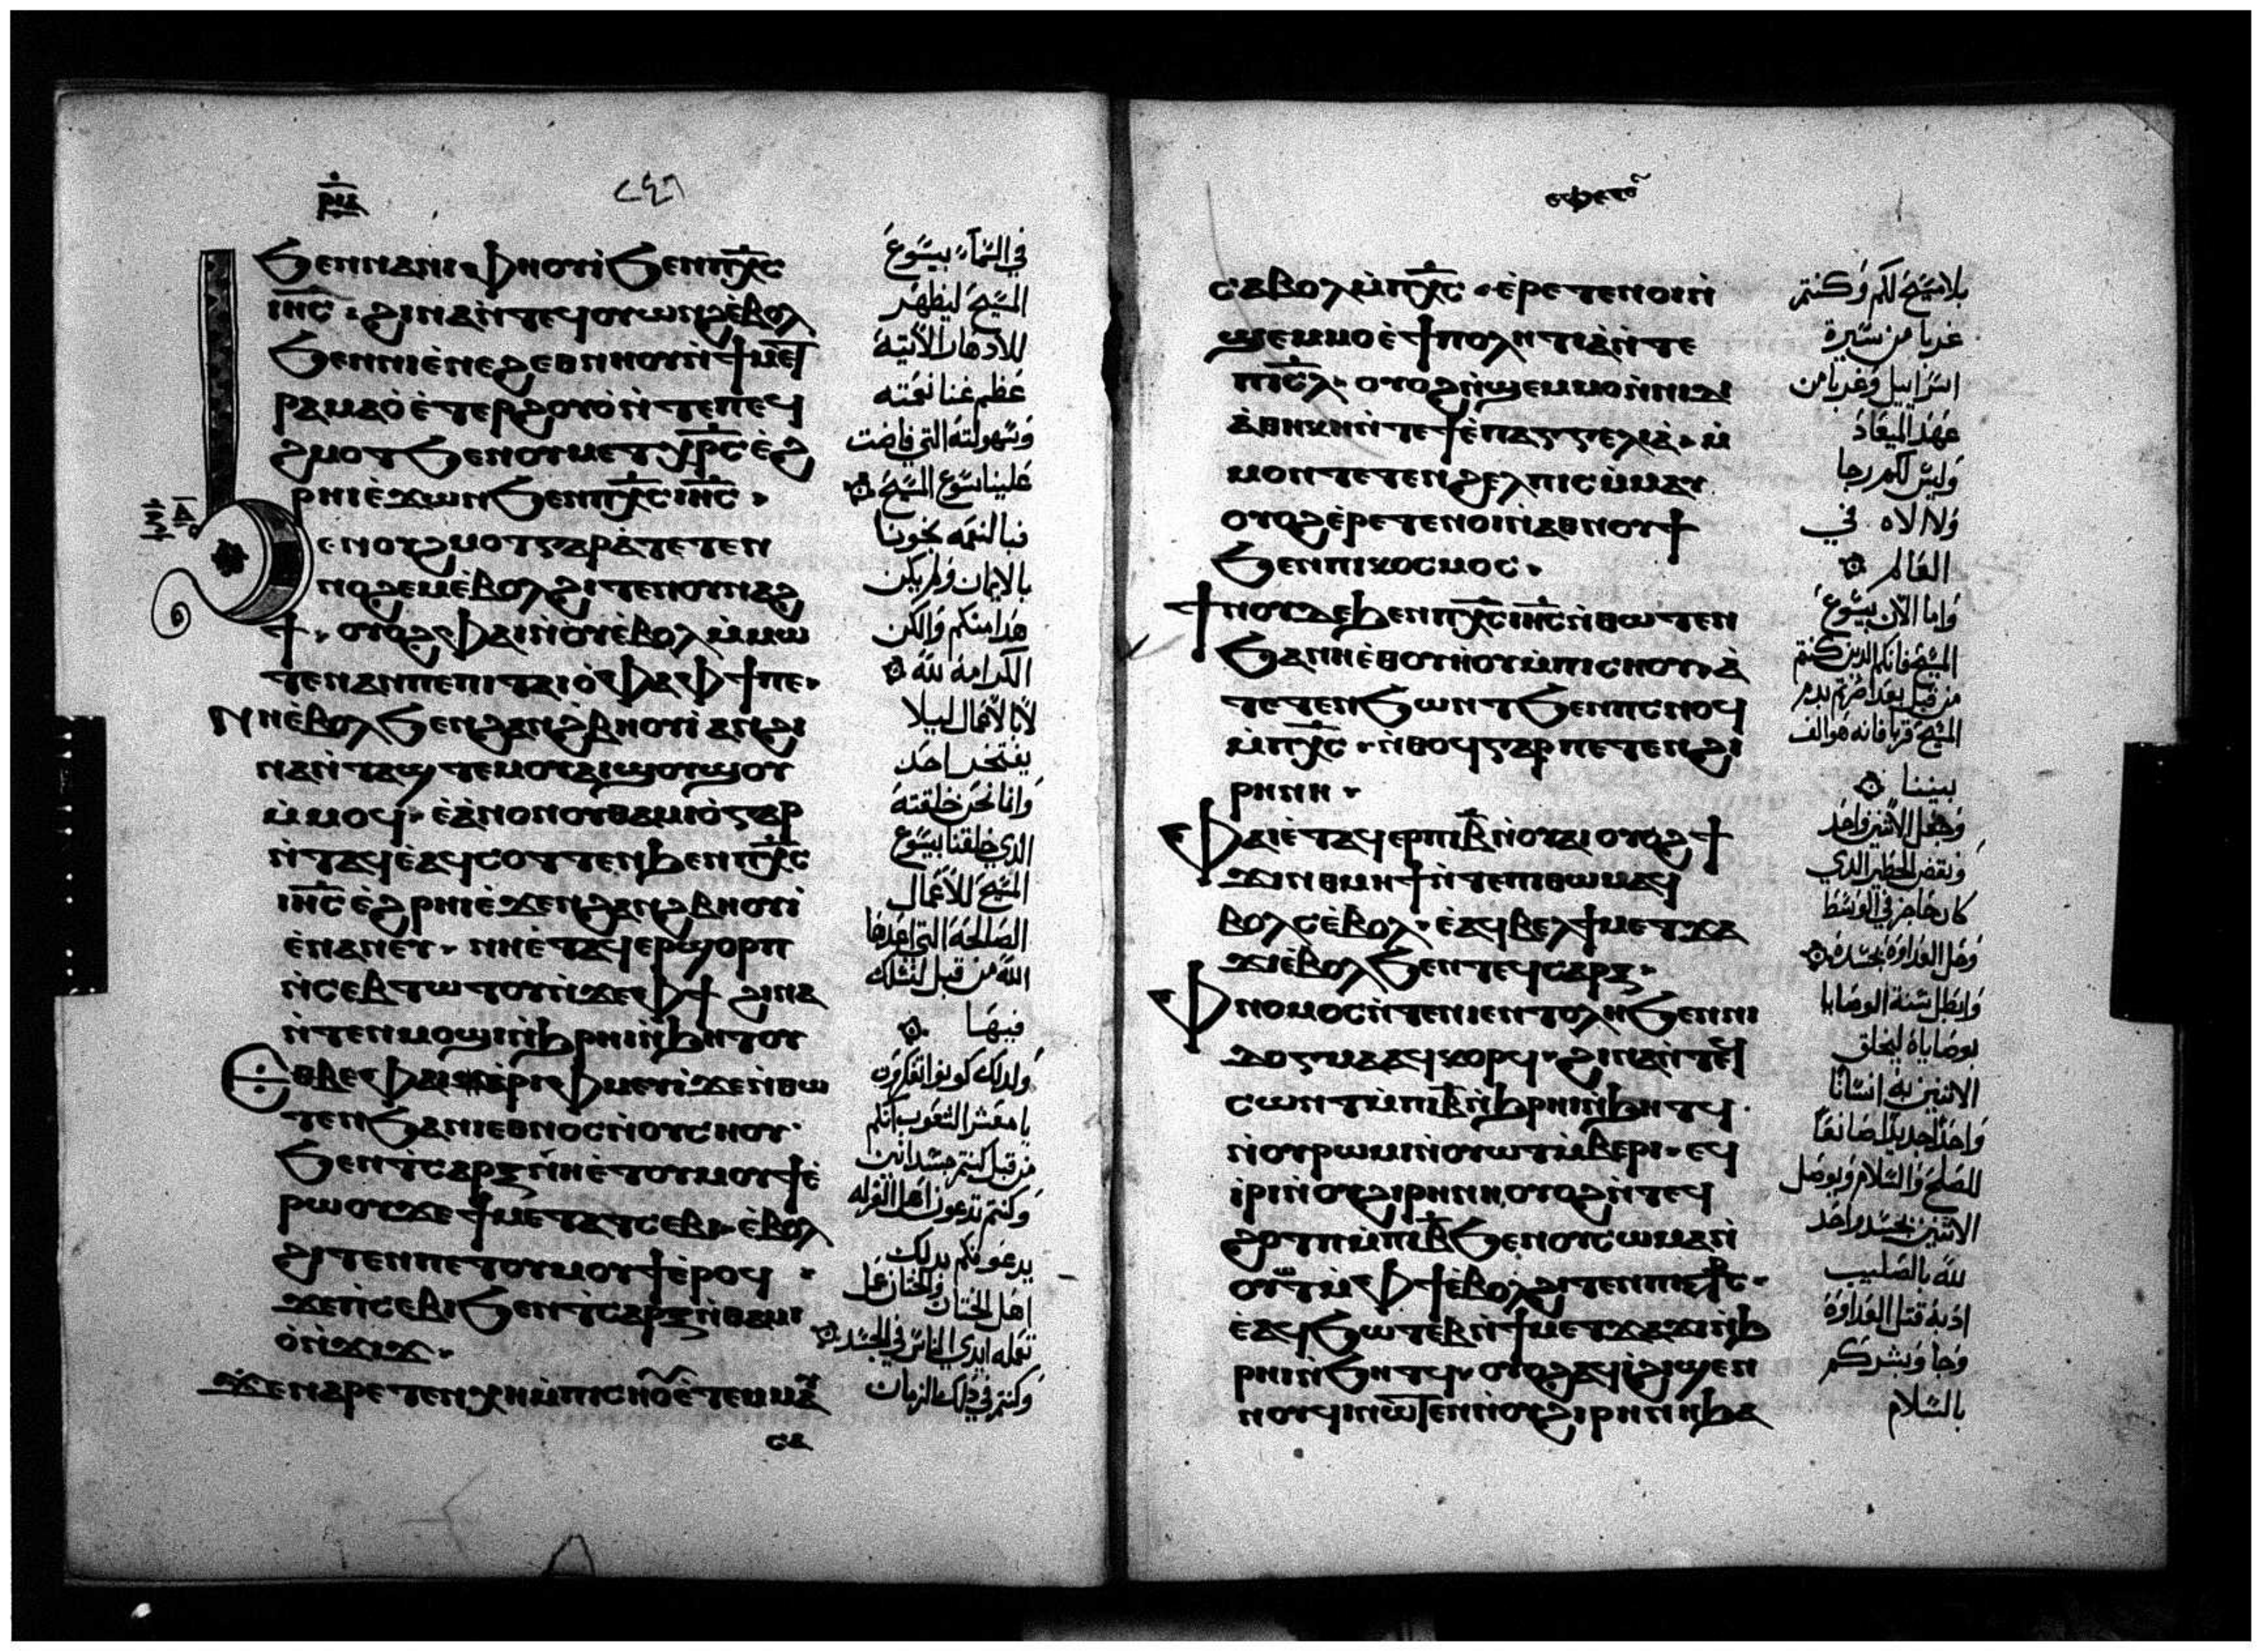 ⲣⲓⲇ
٢٤٦
ϧⲉⲛⲛⲁⲛⲓⲫⲏⲟⲩⲓ̀ϧⲉⲛⲡⲭ̅ⲥ̅
ⲓⲏ̅ⲥ̅· ϩⲓⲛⲁⲛ̀ⲧⲉϥⲟⲩⲱⲛϩⲉ̀ⲃⲟⲗ
ϧⲉⲛⲛⲓⲉ̀ⲛⲉϩⲉⲑⲛⲏⲟⲩⲛ̀ϯⲙⲉⲧ
ⲣⲁⲙⲁⲟ̀ⲉ̀ⲧⲉⲣϩⲟⲩⲟ̀ⲛ̀ⲧⲉⲡⲉϥ
ϩⲙⲟⲧϧⲉⲛⲟⲩⲙⲉⲧⲭⲣ̅ⲥ̅ⲉ̀ϩ
ⲣⲏⲓⲉ̀ϫⲱⲛϧⲉⲛⲡⲭ̅ⲥ̅ⲓⲏ̅ⲥ̅·
ϧⲉⲛⲟⲩϩⲙⲟⲧⲅⲁⲣⲁ̀ⲧⲉⲧⲉⲛ
ⲛⲟϩⲉⲙⲉ̀ⲃⲟⲗϩⲓⲧⲉⲛⲟⲩⲛⲁϩ
ϯ· ⲟⲩⲟϩⲫⲁⲓⲛ̀ⲟⲩⲉ̀ⲃⲟⲗⲙ̀ⲙⲱ
ⲧⲉⲛⲁⲛⲡⲉⲡⲓⲧⲁⲓⲟ̀ⲫⲁⲫϯⲡⲉ·
ⲛⲏⲉ̀ⲃⲟⲗϧⲉⲛϩⲁⲛϩⲃⲏⲟⲩⲓ̀ⲁⲛϩⲓ
ⲛⲁⲛ̀ⲧⲁϣⲧⲉⲙⲟⲩⲁⲓϣⲟⲩϣⲟⲩ
ⲙ̀ⲙⲟϥ· ⲉ̀ⲁ̀ⲛⲟⲛⲟⲩⲑⲁⲙⲓⲟ̀ⲅⲁⲣ
ⲛ̀ⲧⲁϥⲉ̀ⲁϥⲥⲟⲩⲧⲉⲛϧⲉⲛⲡⲭ̅ⲥ̅
ⲓⲏ̅ⲥ̅ⲉ̀ϩⲣⲏⲓⲉ̀ϫⲉⲛϩⲁⲛϩⲃⲏⲟⲩⲓ̀
ⲉ̀ⲛⲁⲛⲉⲩ· ⲛⲏⲉ̀ⲧⲁϥⲉⲣϣⲟⲣⲡ
ⲛ̀ⲥⲉⲃⲧⲱⲧⲟⲩⲛ̀ϫⲉⲫϯ ϩⲓⲛⲁ
ⲛ̀ⲧⲉⲛⲙⲟϣⲓⲛ̀ϧⲣⲏⲓⲛ̀ϧⲏⲧⲟⲩ
ⲉⲑⲃⲉⲫⲁⲓⲁ̀ⲣⲓⲫⲙⲉⲩⲓ̀ϫⲉⲛ̀ⲑⲱ
ⲧⲉⲛϧⲁⲛⲓⲉⲑⲛⲟⲥⲛ̀ⲟⲩⲥⲏⲟⲩ·
ϧⲉⲛⲧ̀ⲥⲁⲣⲝⲛⲏⲉ̀ⲧⲟⲩⲙⲟⲩϯⲉ̀
ⲣⲱⲟⲩϫⲉϯⲙⲉⲧⲁⲧⲥⲉⲃⲓ· ⲉ̀ⲃⲟⲗ
ϩⲓⲧⲉⲛⲡⲉⲧⲟⲩⲙⲟⲩϯⲉ̀ⲣⲟϥ ·
ϫⲉⲡ̀ⲥⲉⲃⲓϧⲉⲛⲧ̀ⲥⲁⲣⲝⲛ̀ⲑⲁⲙⲓ
ⲟ̀ⲛ̀ϫⲓϫ·
ϫⲉⲛⲁⲣⲉⲧⲉⲛⲭⲏⲙ̀ⲡⲓⲥⲏⲟⲩⲉ̀ⲧⲉⲙⲙⲁⲩ
ⲥⲁ
في السَّماء بيسَوع
المسَيحَ ليظهَر
للأدهار الآتيَة
عَظم غنا نعمَته
وَسَهولتهَ التي فاضت
عَلينا بسَوع المسَيحَ
فبالنعمَه نجَونا
بالايمان وَلم يكن
هَدا منكم وَالكن
الكرامَة لله
لا بالأعمال ليلا
يفتخر احَد
وَانا نحَن خلقتهَ
الذي خلقنا بيسَوع
المسَيحَ للأعمال
الصَالحَة التي اعَدها
الله من قبل لنسَلك
فيهَا
وَلدلك كونوا تفكرون
يا معَشر الشعَوب انكم
من قبل كنتم جسَدانين
وَكنتم تدعون اهَل الغرله
يدعَونكم بدلك
اهَل الختان وَالختان عَمل
تعمله ايدي الناسَ في الجسَد
وَكنتم في ذلك الزمان
ⲉⲫⲉⲥⲟⲥ
ⲥⲁⲃⲟⲗⲙ̀ⲡⲭ̅ⲥ̅· ⲉ̀ⲣⲉⲧⲉⲛⲟⲓⲛ̀
ϣⲉⲙⲙⲟⲉ̀ϯⲡⲟⲗⲏⲧⲓⲁ̀ⲛ̀ⲧⲉ
ⲡⲓⲥ̅ⲗ̅· ⲟⲩⲟϩⲛ̀ϣⲉⲙⲙⲟⲛ̀ⲛⲓⲇⲓ
ⲁ̀ⲑⲏⲕⲏⲛ̀ⲧⲉϯⲉ̀ⲡⲁⲅⲅⲉⲗⲓⲁ̀· ⲙ̀
ⲙⲟⲛⲧⲉⲧⲉⲛϩⲉⲗⲡⲓⲥⲙ̀ⲙⲁⲩ
ⲟⲩⲟϩⲉ̀ⲣⲉⲧⲉⲛⲟⲓⲛ̀ⲁⲑⲛⲟⲩϯ
ϧⲉⲛⲡⲓⲕⲟⲥⲙⲟⲥ·
ϯⲛⲟⲩⲇⲉϧⲉⲛⲡⲭ̅ⲥ̅ⲓⲏ̅ⲥ̅ⲛ̀ⲑⲱⲧⲉⲛ
ϧⲁⲛⲏⲉ̀ⲑⲟⲩⲏ̀ⲟⲩⲙ̀ⲡⲓⲥⲏⲟⲩ· ⲁ̀
ⲧⲉⲧⲉⲛϧⲱⲛⲧϧⲉⲛⲡⲥⲛⲟϥ
ⲙ̀ⲡⲭ̅ⲥ̅· ⲛ̀ⲑⲟϥⲅⲁⲣⲡⲉⲧⲉⲛϩⲓ
ⲣⲏⲛⲏ·
ⲫⲁⲓⲉ̀ⲧⲁϥⲉⲣⲡⲓⲃ̅ⲛ̀ⲟⲩⲁⲓⲟⲩⲟϩϯ
ϫⲓⲛⲑⲙⲏϯⲛ̀ⲧⲉⲡⲓⲑⲱⲙⲁϥ
ⲃⲟⲗⲥⲉ̀ⲃⲟⲗ· ⲉ̀ⲁϥⲃⲉⲗϯⲙⲉⲧϫⲁ
ϫⲓⲉ̀ⲃⲟⲗϧⲉⲛⲧⲉϥⲥⲁⲣⲝ·
ⲫⲛⲟⲙⲟⲥⲛ̀ⲧⲉⲛⲓⲉⲛⲧⲟⲗⲏϧⲉⲛⲛⲓ
ⲇⲟⲅⲙⲁⲁϥⲕⲟⲣϥ· ϩⲓⲛⲁⲛ̀ⲧⲉϥ
ⲥⲱⲛⲧⲙ̀ⲡⲓⲃ̅ⲛ̀ϧⲣⲏⲓⲛ̀ϧⲏⲧϥ·
ⲛ̀ⲟⲩⲣⲱⲙⲓⲛ̀ⲟⲩⲱⲧⲙ̀ⲃⲉⲣⲓ· ⲉϥ
ⲓ̀ⲣⲓⲛ̀ⲟⲩϩⲓⲣⲏⲛⲏ, ⲟⲩⲟϩⲛ̀ⲧⲉϥ
ϩⲟⲧⲡⲙ̀ⲡⲓⲃ̅ϧⲉⲛⲟⲩⲥⲱⲙⲁⲛ̀
ⲟⲩⲱⲧⲙ̀ⲫϯⲉ̀ⲃⲟⲗϩⲓⲧⲉⲛⲡⲓⲥⲧ̅ⲥ̅·
ⲉ̀ⲁϥϧⲱⲧⲉⲃⲛ̀ϯⲙⲉⲧϫⲁϫⲓⲛ̀ϧ
ⲣⲏⲓⲛ̀ϧⲏⲧϥ· ⲟⲩⲟϩⲁϥⲓ̀ϩⲓϣⲉⲛ
ⲛⲟⲩϥⲓⲛⲱⲧⲉⲛⲛ̀ⲟⲩϩⲓⲣⲏⲛⲏϧⲁ
بلا مسَيحَ لكم وَكنتم
غربا من سَيرة
اسَراييل وَغربا من
عَهَد الميعَاد
وَليسَ لكم رجا
وَلا الاه في
العَالم
وَاما الآن بيسَوع
المسَيحَ فانكم الدين كنتم
من قبل بعَدا صَرتم بدم
المسَيحَ قربا فانه هَو الف
بيننا
وَجعَل الآثنين وَاحَد
وَنقض الحَظير الدي
كان حَاجز في الوسَط
وَحَل العَداوَة بجسَده
وَابطل سَنة الوصَايا
بوصَاياه ليخلق
الاثنين به انسَانًا
وَاحَدًا جديدًا صَانعَا
للصَلحَ وَالسَلام وَيوصَل
الاثنين بجسَد وَاحَد
لله بالصَليب
اد به قتل العَداوَة
وَجا وَبشركم
بالسَلام